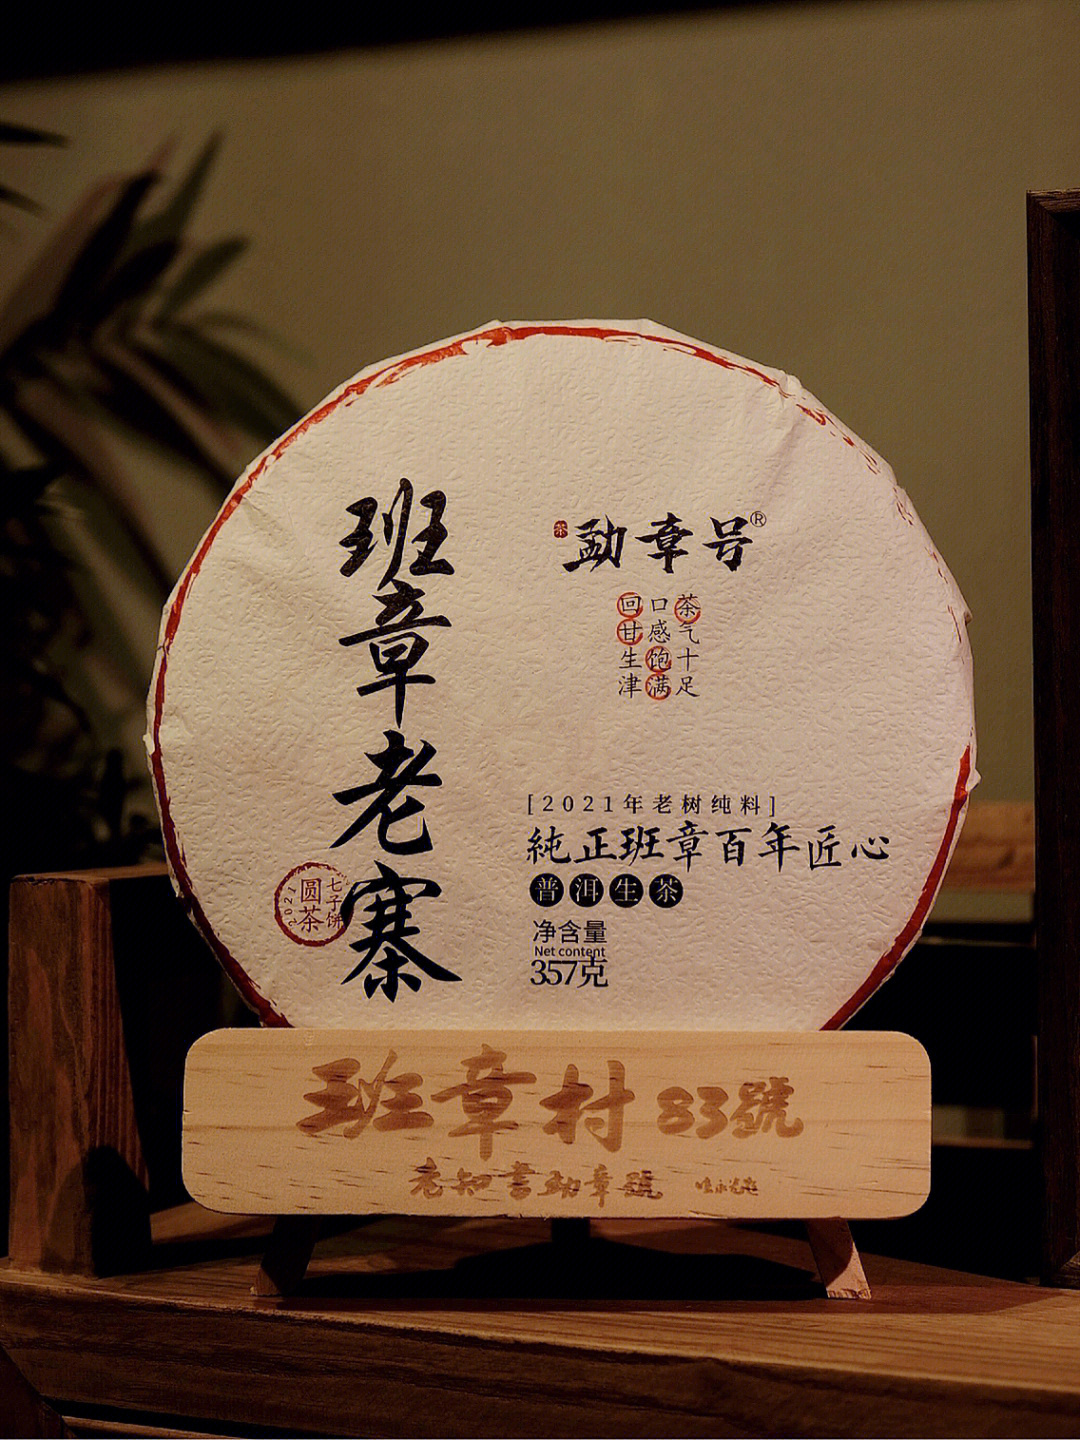 班章老寨
茶
勐章号®
茶气十足
口感饱满
回甘生津
[2021年老树纯料]
純正班章百年匠心
普洱生茶
净含量
Net content
357克
七子饼
圆茶
2021
班章村83號
老知書勐章號